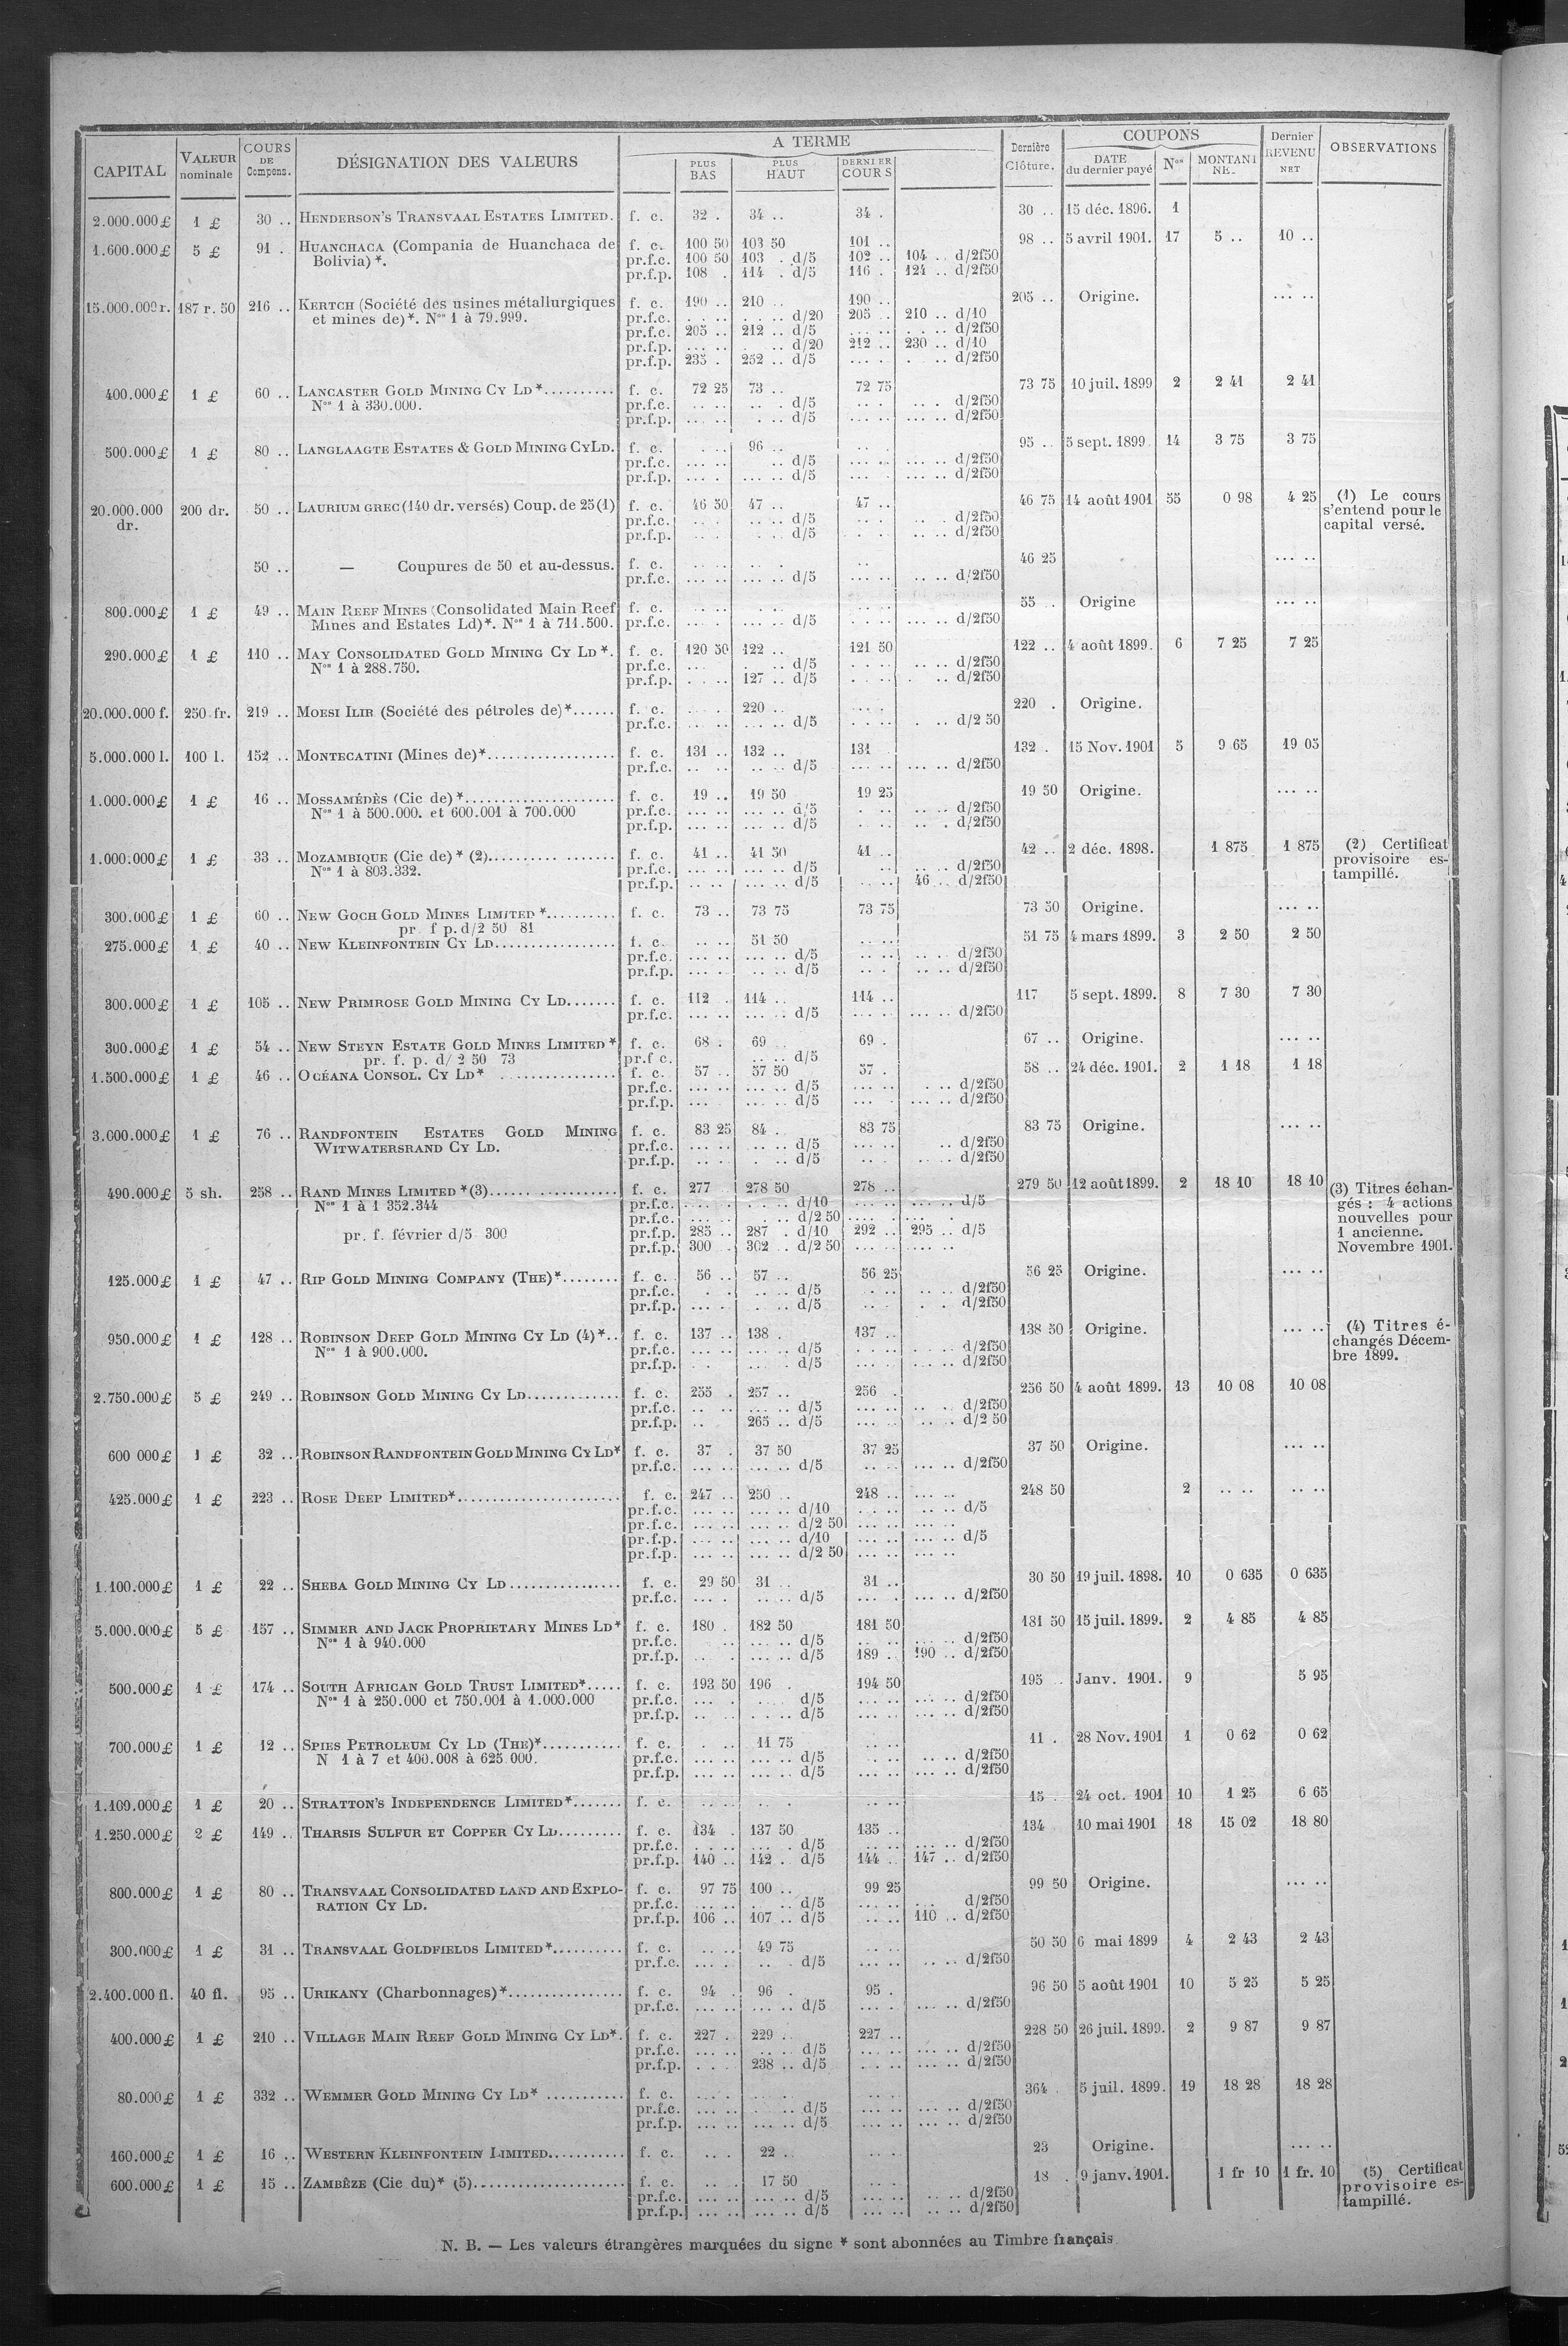 CAPITAL VALEUR nominale COURS DE Compens. DÉSIGNATION DES VALEURS A TERME PLUS BAS PLUS HAUT DERNIER COURS Dernière Clôture. COUPONS DATE du dernier payé Nos MONTANT NET Dernier REVENU NET OBSERVATIONS
2.000.000 £ 1 £ 30 .. HENDERSON'S TRANSVAAL ESTATES LIMITED. f. c. 32 . 34 .. 34 . 30 .. 15 déc. 1896. 1
1.600.000 £ 5 £ 91 . HUANCHACA (Compania de Huanchaca de f. c. 100 50 103 50 101 .. 98 .. 5 avril 1901. 17 5 .. 10 ..
Bolivia) *. pr.f.c. 100 50 103 . d/5 102 .. 104 .. d/2f50
pr.f.p. 108 . 114 . d/5 116 . 124 .. d/2f50
15.000.000 r. 187 r. 50 216 .. KERTCH (Société des usines métallurgiques f. c. 190 .. 210 .. 190 .. 205 .. Origine. ... ..
et mines de)*. Nos 1 à 79.999. pr.f.c. . .. d/20 205 .. 210 .. d/10
pr.f.c. 205 .. 212 .. d/5 ... .. d/2f50
pr.f.p. ... .. d/20 212 .. 230 .. d/10
pr.f.p. 235 . 252 .. d/5 ... . d/2f50
400.000 £ 1 £ 60 .. LANCASTER GOLD MINING CY LD*.......... f. c. 72 25 73 .. 72 75 73 75 10 juil. 1899 2 2 41 2 41
Nos 1 à 330.000. pr.f.c. d/5 d/2f50
pr.f.p. d/5 d/2f50
500.000 £ 1 £ 80 .. LANGLAAGTE ESTATES & GOLD MINING CY LD. f. c. 96 .. 95 .. 5 sept. 1899 14 3 75 3 75
pr.f.c. d/5 d/2f50
pr.f.p. d/5 d/2f50
20.000.000 dr. 200 dr. 50 .. LAURIUM GREC (140 dr. versés) Coup. de 25 (1) f. c. 46 50 47 .. 47 .. 46 75 14 août 1901 55 0 98 4 25 (1) Le cours s'entend pour le capital versé.
pr.f.c. d/5 d/2f50
pr.f.p. d/5 d/2f50
50 .. — Coupures de 50 et au-dessus. f. c. 46 25 ... ..
pr.f.c. d/5 d/2f50
800.000 £ 1 £ 49 .. MAIN REEF MINES (Consolidated Main Reef f. c. 55 . Origine ... ..
Mines and Estates Ld)*. Nos 1 à 711.500. pr.f.c. d/5 d/2f50
290.000 £ 1 £ 110 .. MAY CONSOLIDATED GOLD MINING CY LD *. f. c. 120 50 122 .. 121 50 122 .. 4 août 1899. 6 7 25 7 25
Nos 1 à 288.750. pr.f.c. d/5 d/2f50
pr.f.p. 127 .. d/5 d/2f50
20.000.000 f. 250 fr. 219 .. MOESI ILIR (Société des pétroles de)*...... f. c. 220 .. 220 . Origine.
pr.f.c. d/5 d/2 50
5.000.000 l. 100 l. 152 .. MONTECATINI (Mines de)*.................. f. c. 131 .. 132 .. 131 132 . 15 Nov. 1901 5 9 65 19 05
pr.f.c. d/5 d/2f50
1.000.000 £ 1 £ 16 .. MOSSAMÉDÈS (Cie de)*..................... f. c. 19 .. 19 50 19 25 19 50 Origine. ... ..
Nos 1 à 500.000. et 600.001 à 700.000 pr.f.c. d/5 d/2f50
pr.f.p. d/5 d/2f50
1.000.000 £ 1 £ 33 .. MOZAMBIQUE (Cie de) * (2).......... ....... f. c. 41 .. 41 50 41 .. 42 .. 2 déc. 1898. 1 875 1 875 (2) Certificat provisoire estampillé.
Nos 1 à 803.332. pr.f.c. d/5 d/2f50
pr.f.p. d/5 46 .. d/2f50
300.000 £ 1 £ 60 .. NEW GOCH GOLD MINES LIMITED *.......... f. c. 73 .. 73 75 73 75 73 50 Origine. ... ..
pr f p. d/2 50 81
275.000 £ 1 £ 40 .. NEW KLEINFONTEIN CY LD................. f. c. 51 50 51 75 4 mars 1899. 3 2 50 2 50
pr.f.c. d/5 d/2f50
pr.f.p. d/5 d/2f50
300.000 £ 1 £ 105 .. NEW PRIMROSE GOLD MINING CY LD....... f. c. 112 . 114 .. 114 .. 117 5 sept. 1899. 8 7 30 7 30
pr.f.c. d/5 d/2f50
300.000 £ 1 £ 54 .. NEW STEYN ESTATE GOLD MINES LIMITED * f. c. 68 . 69 .. 69 . 67 .. Origine. ... ..
pr. f. p. d/ 2 50 73 pr.f c. d/5
1.500.000 £ 1 £ 46 .. OCÉANA CONSOL. CY LD* ............... f. c. 57 .. 57 50 57 . 58 .. 24 déc. 1901. 2 1 18 1 18
pr.f.c. d/5 d/2f50
pr.f.p. d/5 d/2f50
3.000.000 £ 1 £ 76 .. RANDFONTEIN ESTATES GOLD MINING f. c. 83 25 84 . 83 75 83 75 Origine. ... ..
WITWATERSRAND CY LD. pr.f.c. d/5 d/2f50
pr.f.p. d/5 d/2f50
490.000 £ 5 sh. 258 .. RAND MINES LIMITED *(3)................... f. c. 277 278 50 278 .. 279 50 12 août 1899. 2 18 10 18 10 (3) Titres échangés : 4 actions nouvelles pour 1 ancienne. Novembre 1901.
Nos 1 à 1 352.344 pr.f.c. d/10 d/5
pr.f.c. d/2 50
pr. f. février d/5 300 pr.f.p. 285 .. 287 . d/10 292 .. 295 .. d/5
pr.f.p. 300 . 302 .. d/2 50
125.000 £ 1 £ 47 .. RIP GOLD MINING COMPANY (THE)*........ f. c. 56 .. 57 .. 56 25 56 25 Origine. ... ..
pr.f.c. d/5 d/2f50
pr.f.p. d/5 d/2f50
950.000 £ 1 £ 128 .. ROBINSON DEEP GOLD MINING CY LD (4)*.. f. c. 137 .. 138 . 137 .. 138 50 Origine. ... .. (4) Titres échangés Décembre 1899.
Nos 1 à 900.000. pr.f.c. d/5 d/2f50
pr.f.p. d/5 d/2f50
2.750.000 £ 5 £ 249 .. ROBINSON GOLD MINING CY LD............. f. c. 255 . 257 .. 256 . 256 50 4 août 1899. 13 10 08 10 08
pr.f.c. d/5 d/2f50
pr.f.p. 265 .. d/5 d/2 50
600 000 £ 1 £ 32 .. ROBINSON RANDFONTEIN GOLD MINING CY LD* f. c. 37 . 37 50 37 25 37 50 Origine. ... ..
pr.f.c. d/5 d/2f50
425.000 £ 1 £ 223 .. ROSE DEEP LIMITED*....................... f. c. 247 .. 250 .. 248 .. 248 50 2 .. .. .. ..
pr.f.c. d/10 d/5
pr.f.c. d/2 50
pr.f.p. d/10 d/5
pr.f.p. d/2 50
1.100.000 £ 1 £ 22 .. SHEBA GOLD MINING CY LD................ f. c. 29 50 31 .. 31 .. 30 50 19 juil. 1898. 10 0 635 0 635
pr.f.c. d/5 d/2f50
5.000.000 £ 5 £ 157 .. SIMMER AND JACK PROPRIETARY MINES LD* f. c. 180 . 182 50 181 50 181 50 15 juil. 1899. 2 4 85 4 85
Nos 1 à 940.000 pr.f.c. d/5 d/2f50
pr.f.p. d/5 189 .. 190 .. d/2f50
500.000 £ 1 £ 174 .. SOUTH AFRICAN GOLD TRUST LIMITED*..... f. c. 193 50 196 . 194 50 195 .. Janv. 1901. 9 5 95
Nos 1 à 250.000 et 750.001 à 1.000.000 pr.f.c. d/5 d/2f50
pr.f.p. d/5 d/2f50
700.000 £ 1 £ 12 .. SPIES PETROLEUM CY LD (THE)*........... f. c. 11 75 11 . 28 Nov. 1901 1 0 62 0 62
N 1 à 7 et 400.008 à 625 000. pr.f.c. d/5 d/2f50
pr.f.p. d/5 d/2f50
1.100.000 £ 1 £ 20 .. STRATTON'S INDEPENDENCE LIMITED*....... f. c. 15 . 24 oct. 1901 10 1 25 6 65
1.250.000 £ 2 £ 149 .. THARSIS SULFUR ET COPPER CY LD......... f. c. 134 . 137 50 135 .. 134 10 mai 1901 18 15 02 18 80
pr.f.c. d/5 d/2f50
pr.f.p. 140 .. 142 . d/5 144 .. 147 .. d/2f50
800.000 £ 1 £ 80 .. TRANSVAAL CONSOLIDATED LAND AND EXPLO- f. c. 97 75 100 .. 99 25 99 50 Origine. ... ..
RATION CY LD. pr.f.c. d/5 d/2f50
pr.f.p. 106 .. 107 .. d/5 110 .. d/2f50
300.000 £ 1 £ 31 .. TRANSVAAL GOLDFIELDS LIMITED*.......... f. c. 49 75 50 50 6 mai 1899 4 2 43 2 43
pr.f.c. d/5 d/2f50
2.400.000 fl. 40 fl. 95 .. URIKANY (Charbonnages)*................ f. c. 94 . 96 . 95 . 96 50 5 août 1901 10 5 25 5 25
pr.f.c. d/5 d/2f50
400.000 £ 1 £ 210 .. VILLAGE MAIN REEF GOLD MINING CY LD*. f. c. 227 . 229 . 227 .. 228 50 26 juil. 1899. 2 9 87 9 87
pr.f.c. d/5 d/2f50
pr.f.p. 238 .. d/5 d/2f50
80.000 £ 1 £ 332 .. WEMMER GOLD MINING CY LD* ........... f. c. 364 . 5 juil. 1899. 19 18 28 18 28
pr.f.c. d/5 d/2f50
pr.f.p. d/5 d/2f50
160.000 £ 1 £ 16 .. WESTERN KLEINFONTEIN LIMITED........... f. c. 22 .. 23 Origine. ... ..
600.000 £ 1 £ 15 .. ZAMBÈZE (Cie du)* (5)..................... f. c. 17 50 18 . 9 janv. 1901. 1 fr 10 1 fr. 10 (5) Certificat provisoire estampillé.
pr.f.c. d/5 d/2f50
pr.f.p. d/5 d/2f50
N. B. — Les valeurs étrangères marquées du signe * sont abonnées au Timbre français